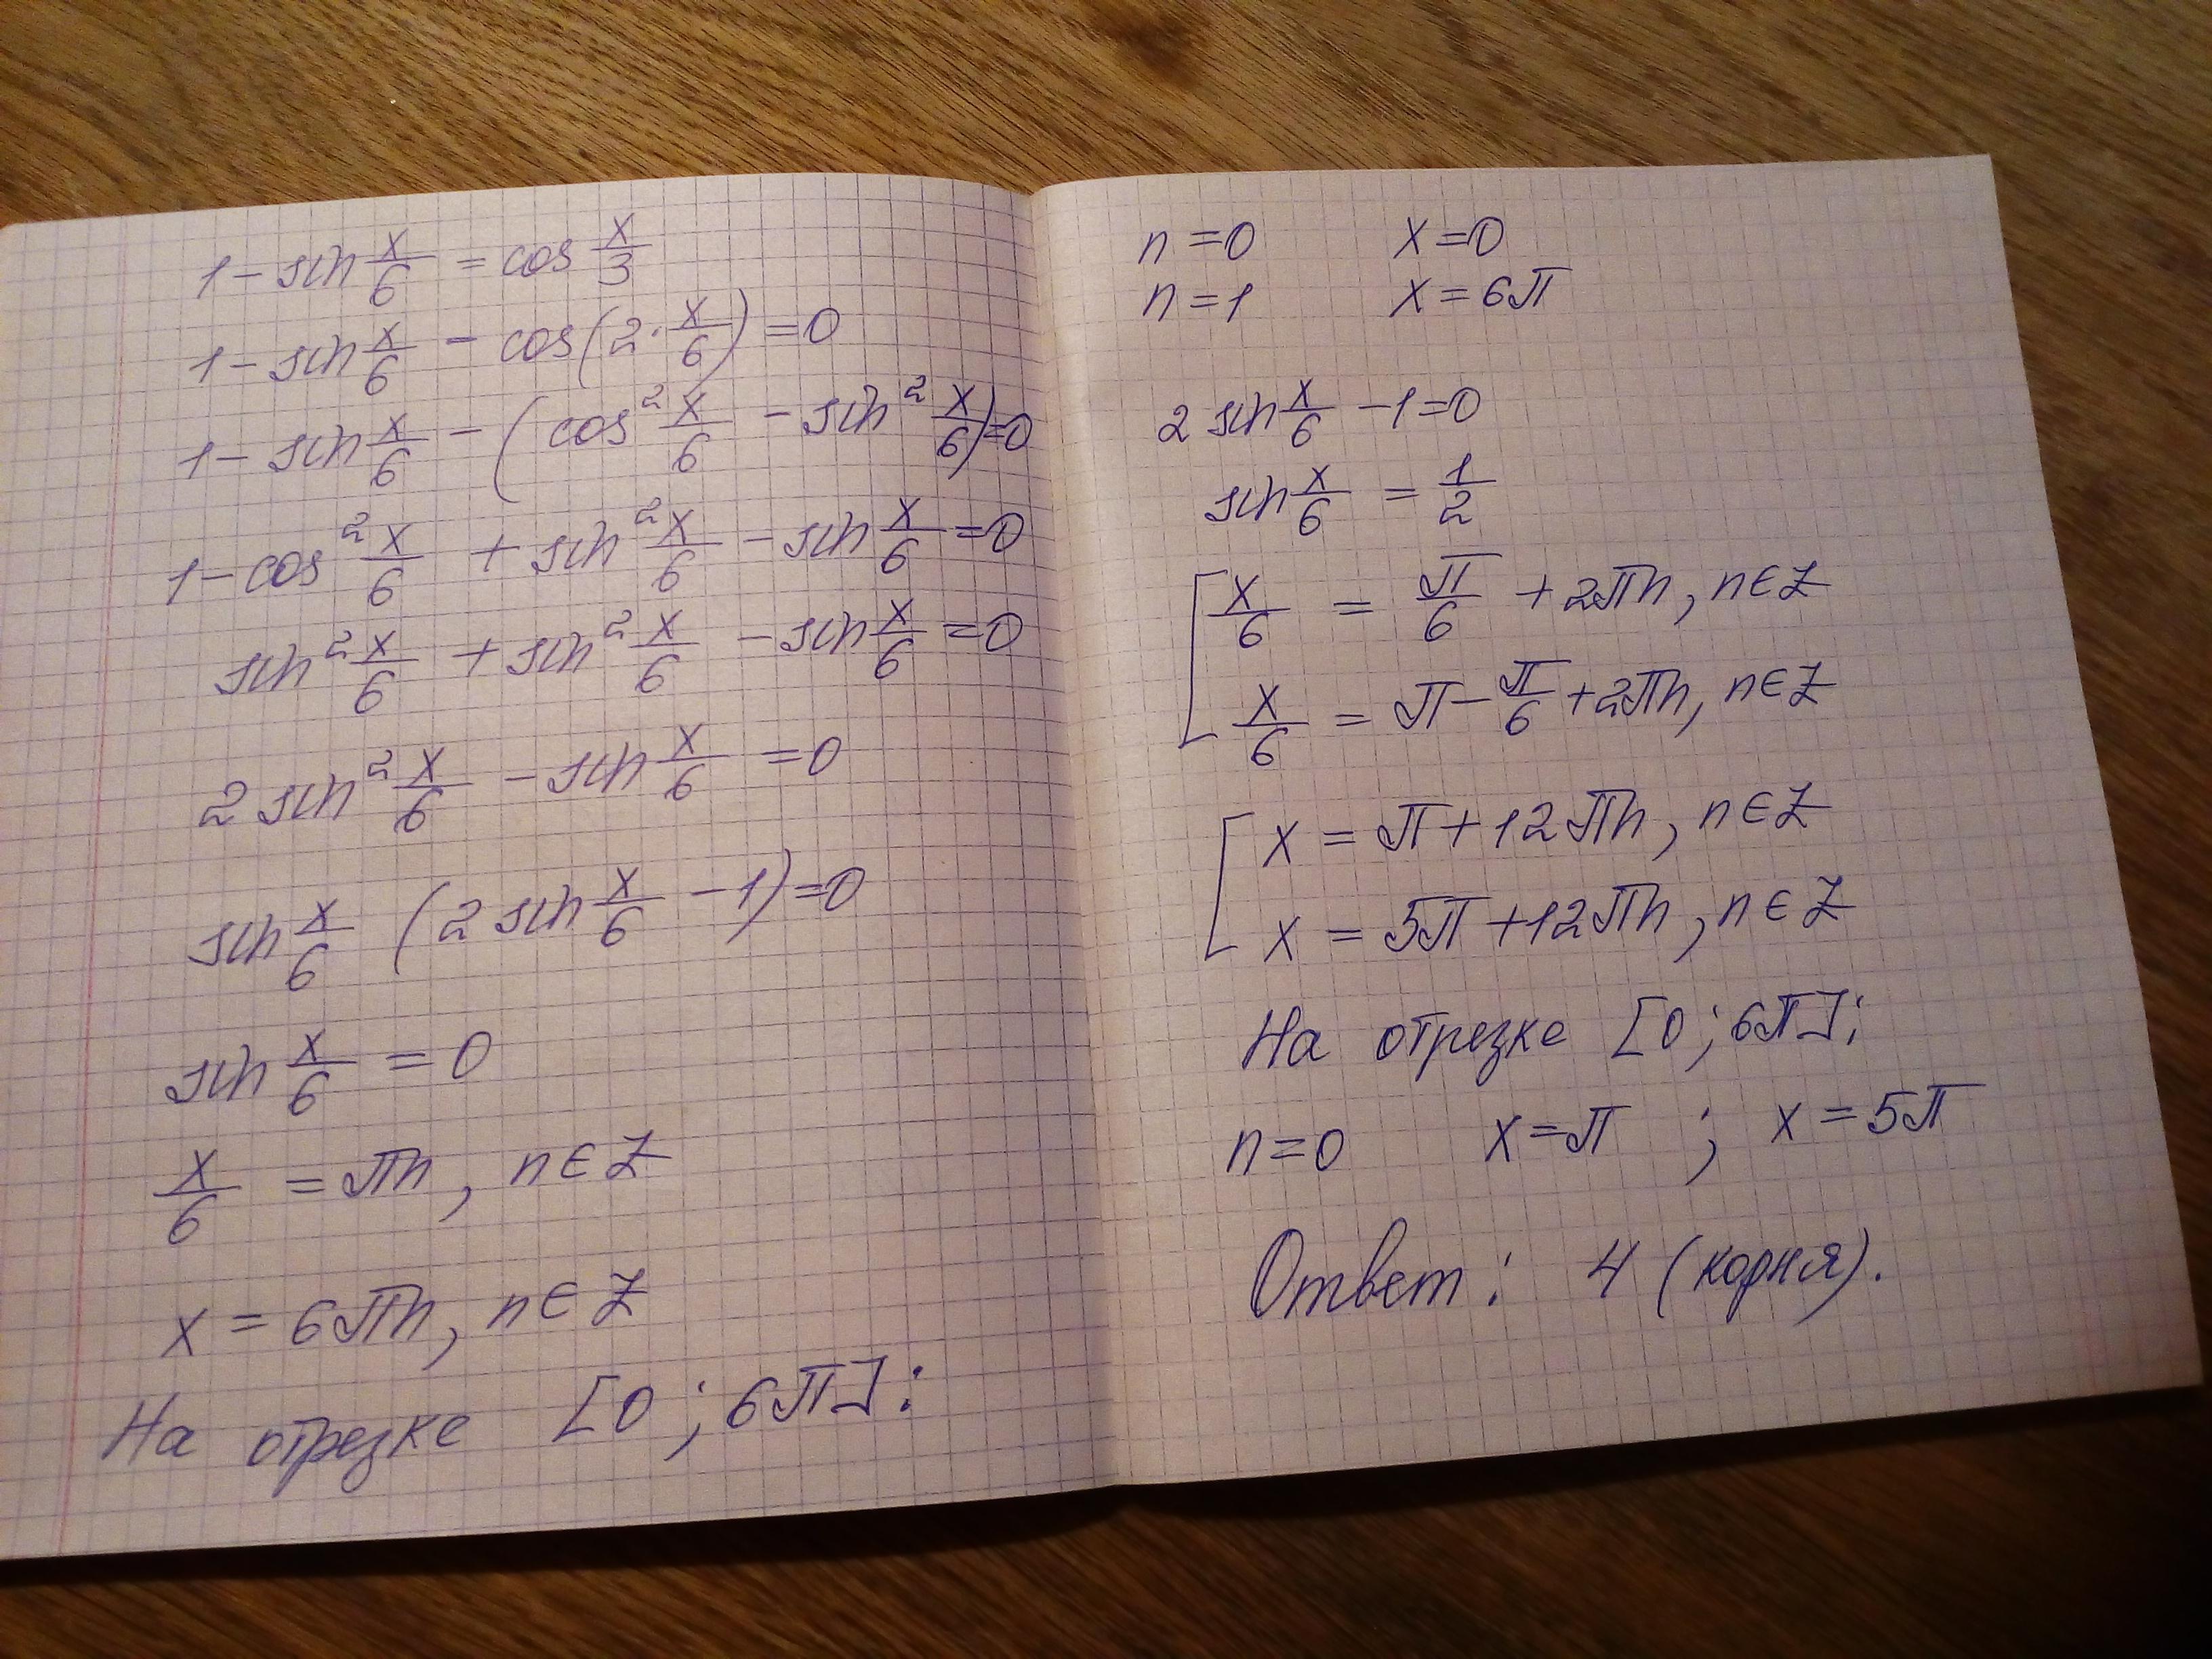 1 − sin x/6 = cos x/3
1 − sin x/6 − cos(2 · x/6) = 0
1 − sin x/6 − (cos² x/6 − sin² x/6) = 0
1 − cos² x/6 + sin² x/6 − sin x/6 = 0
sin² x/6 + sin² x/6 − sin x/6 = 0
2 sin² x/6 − sin x/6 = 0
sin x/6 (2 sin x/6 − 1) = 0
sin x/6 = 0
x/6 = πn, n ∈ Z
x = 6πn, n ∈ Z
На отрезке [0; 6π]:
n = 0 x = 0
n = 1 x = 6π
2 sin x/6 − 1 = 0
sin x/6 = 1/2
[ x/6 = π/6 + 2πn, n ∈ Z
x/6 = π − π/6 + 2πn, n ∈ Z
[ x = π + 12πn, n ∈ Z
x = 5π + 12πn, n ∈ Z
На отрезке [0; 6π]:
n = 0 x = π ; x = 5π
Ответ: 4 (корня).